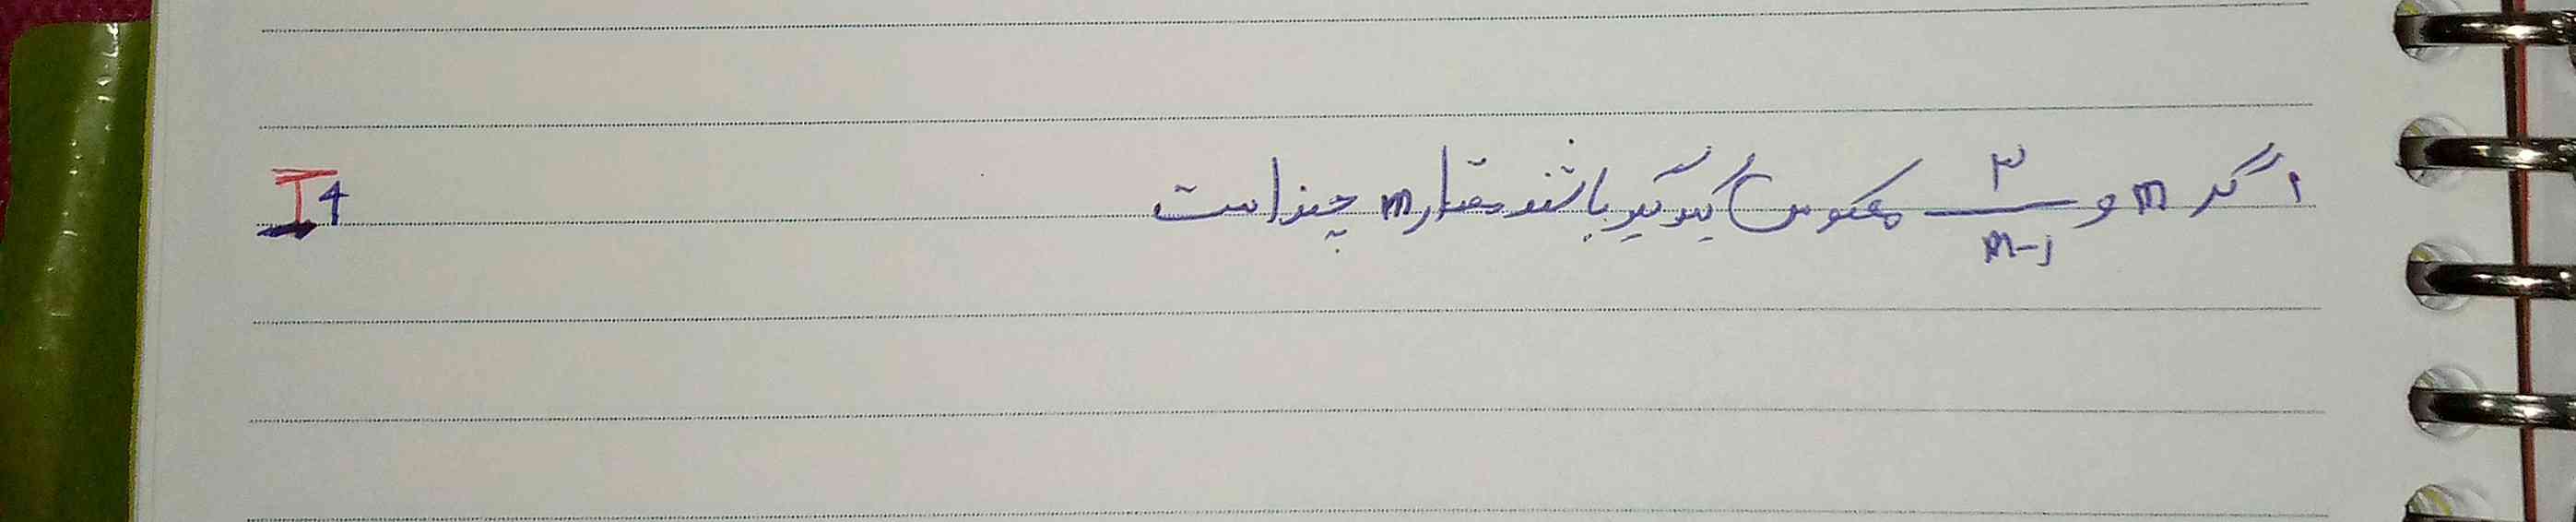 اگر m و ۳/m-۱ معکوس یکدیگر باشند مقدار m چند است